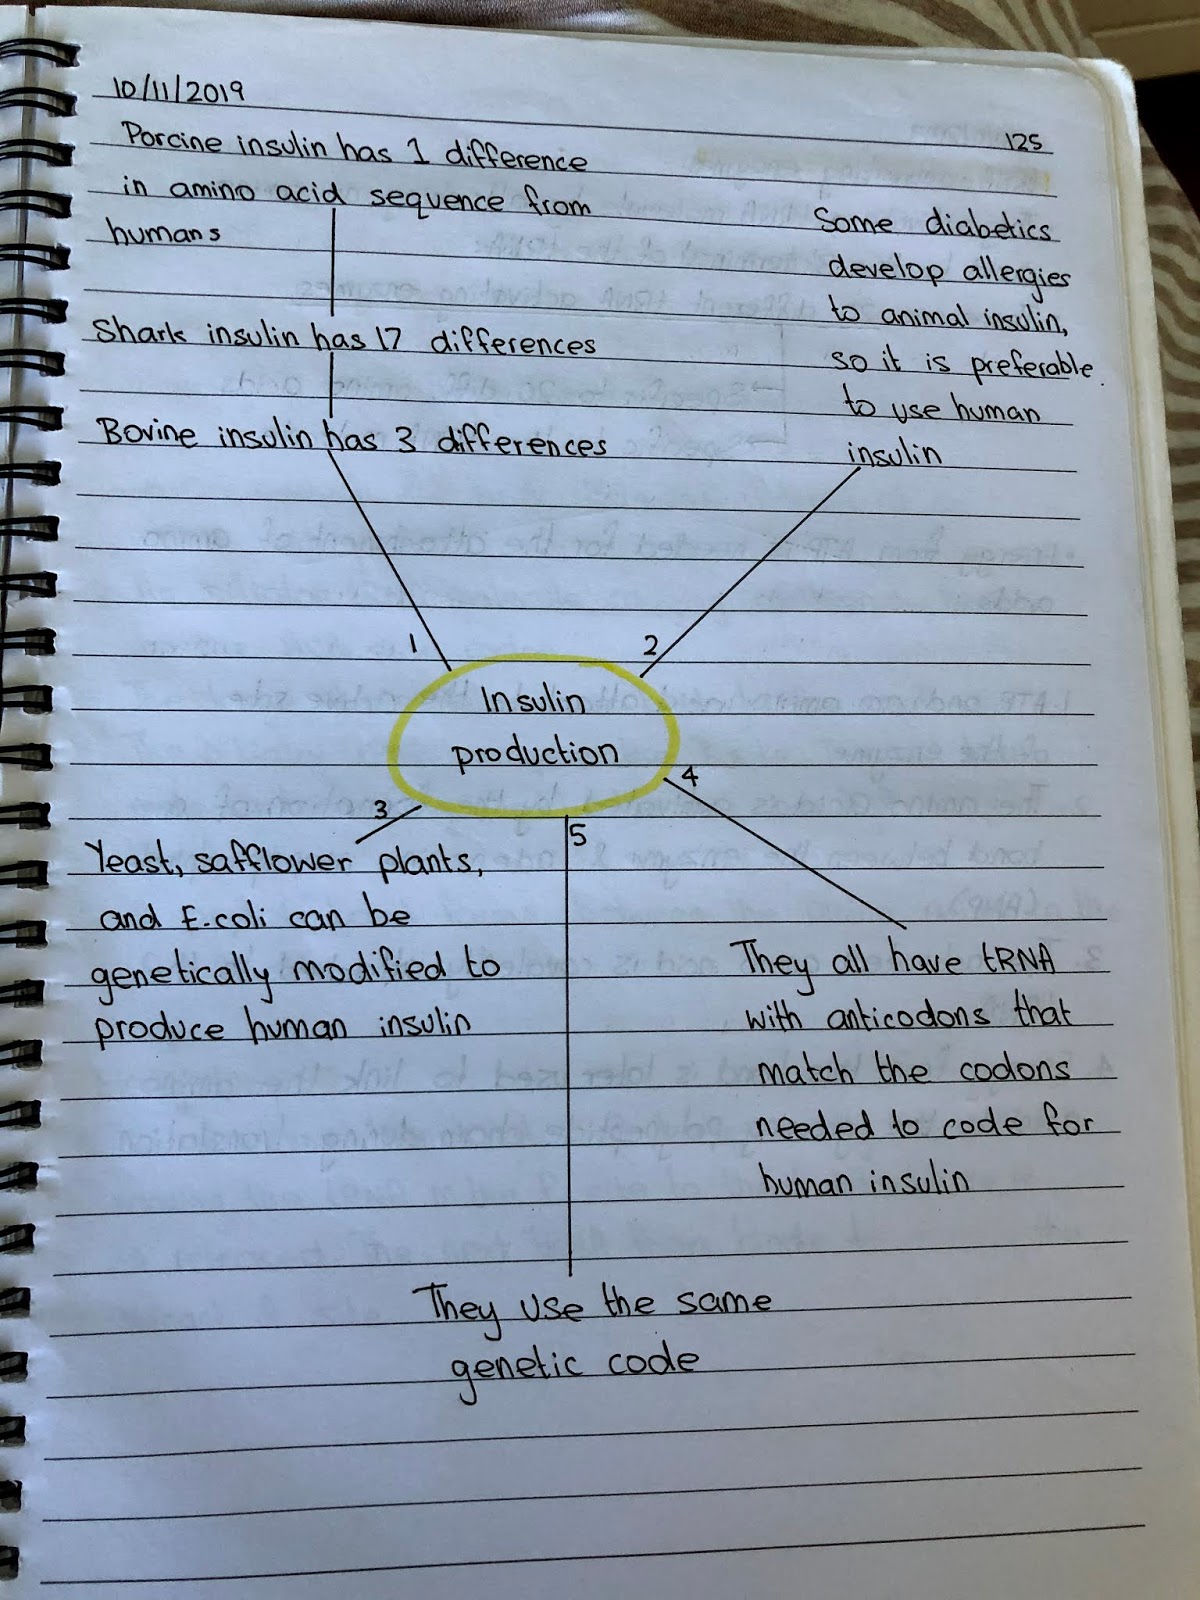 10/11/2019
125
Porcine insulin has 1 difference
in amino acid sequence from
humans
Shark insulin has 17 differences
Bovine insulin has 3 differences
Some diabetics
develop allergies
to animal insulin,
so it is preferable
to use human
insulin
1
2
Insulin
production
3
4
5
Yeast, safflower plants,
and E.coli can be
genetically modified to
produce human insulin
They all have tRNA
with anticodons that
match the codons
needed to code for
human insulin
They use the same
genetic code